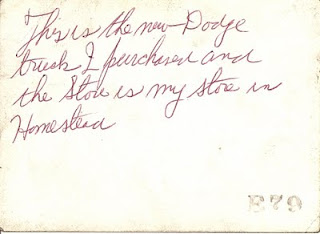 This is the new Dodge
truck I purchased and
the Store is my store in
Homestead
E79